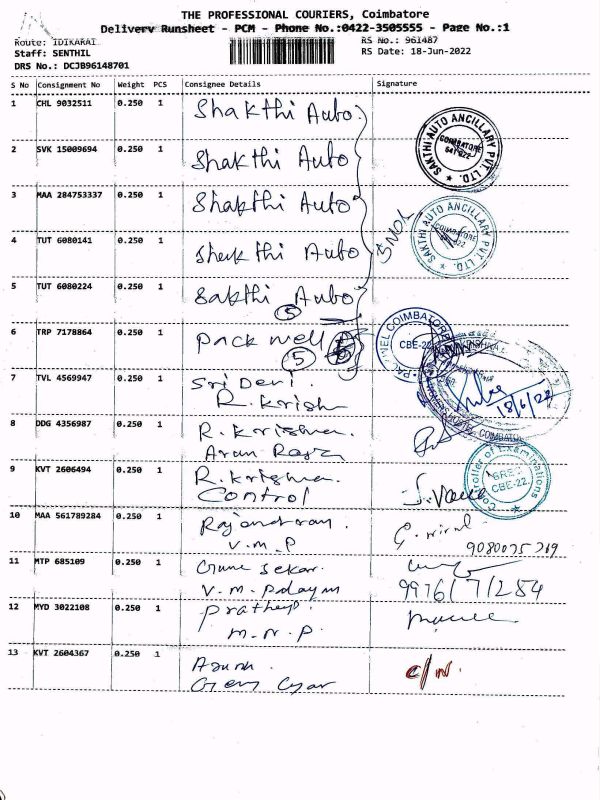 THE PROFESSIONAL COURIERS, Coimbatore
Delivery Runsheet - PCM - Phone No.:0422-3505555 - Page No.:1
Route: IDIKARAI
RS No.: 961487
Staff: SENTHIL
RS Date: 18-Jun-2022
DRS No.: DCJB96148701
S No Consignment No Weight PCS Consignee Details Signature
1 CHL 9032511 0.250 1 Shakthi Auto
2 SVK 15009694 0.250 1 Shakthi Auto
3 MAA 284753337 0.250 1 Shakthi Auto
4 TUT 6080141 0.250 1 Shakthi Auto
5 TUT 6080224 0.250 1 Sakthi Auto
5
5 NOS
SAKTHI AUTO ANCILLARY PVT. LTD.
COIMBATORE
SAKTHI AUTO ANCILLARY PVT. LTD.
COIMBATORE
6 TRP 7178864 0.250 1 Pack well
5
COIMBATORE
CBE-22
7 TVL 4569947 0.250 1 Sri Devi.
R. Krish
18/6/22
COIMBATORE
8 DDG 4356987 0.250 1 R. Krishna.
Arun Raja
9 KVT 2606494 0.250 1 R. Krishna.
Control
Controller of Examinations
CBE-22.
10 MAA 561789284 0.250 1 Rajendran.
V.M.P
11 MTP 685109 0.250 1 Guna Sekar.
V.M. Palayam
9976171284
12 MYD 3022108 0.250 1 Prathep.
M.N.P.
13 KVT 2604367 0.250 1 Arun.